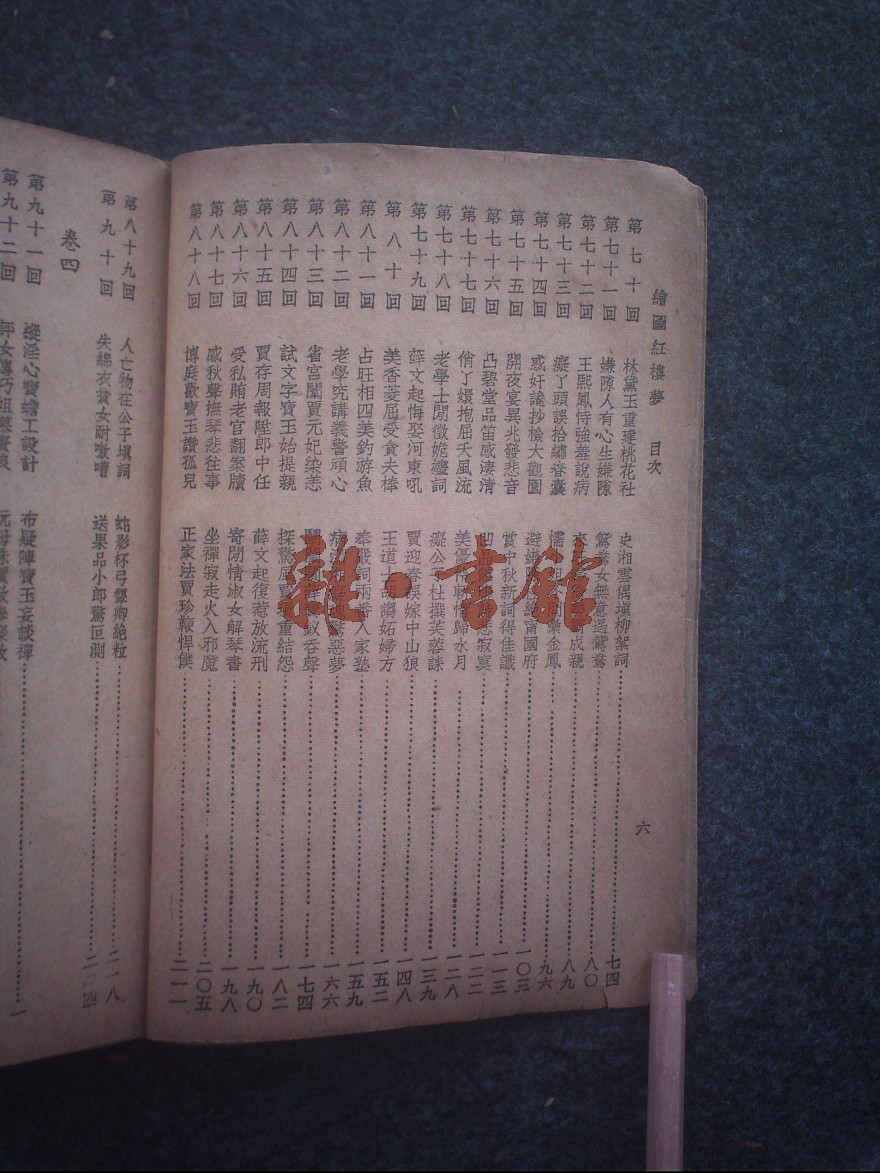 繪圖紅樓夢 目次 六
第七十回 林黛玉重建桃花社 史湘雲偶塡柳絮詞 七四
第七十一回 嫌隙人有心生嫌隙 鴛鴦女無意遇鴛鴦 八〇
第七十二回 王熙鳳恃強羞說病 來 成親 八九
第七十三回 癡丫頭誤拾繡春囊 懦 纍金鳳 九六
第七十四回 惑奸讒抄檢大觀園 避嫌 甯國府 一〇三
第七十五回 開夜宴異兆發悲音 賞中秋新詞得佳讖 一一三
第七十六回 凸碧堂品笛感淒清 凹 悲寂寞 一二二
第七十七回 俏丫嬛抱屈夭風流 美優伶斬情歸水月 一二八
第七十八回 老學士閒徵姽嫿詞 癡公子杜撰芙蓉誄 一三九
第七十九回 薛文起悔娶河東吼 賈迎春誤嫁中山狼 一四八
第八十回 美香菱屈受貪夫棒 王道士胡謅妬婦方 一五二
第八十一回 占旺相四美釣游魚 奉嚴詞兩番入家塾 一五九
第八十二回 老學究講義警頑心 病 惡夢 一六六
第八十三回 省宮闈賈元妃染恙 鬧 吞聲 一七四
第八十四回 試文字寶玉始提親 探驚風賈 重結怨 一八二
第八十五回 賈存周報陞郎中任 薛文起復惹放流刑 一九〇
第八十六回 受私賄老官翻案牘 寄閒情淑女解琴書 一九八
第八十七回 感秋聲撫琴悲往事 坐禪寂走火入邪魔 二〇五
第八十八回 博庭歡寶玉讚孤兒 正家法賈珍鞭悍僕 二一一
第八十九回 人亡物在公子填詞 蛇影杯弓顰卿絶粒 二一八
第九十回 失綿衣貧女耐嗷嘈 送果品小郎驚叵測 二二四
卷四
第九十一回 縱淫心寶蟾工設計 布疑陣寶玉妄談禪 一
第九十二回
雜·書館